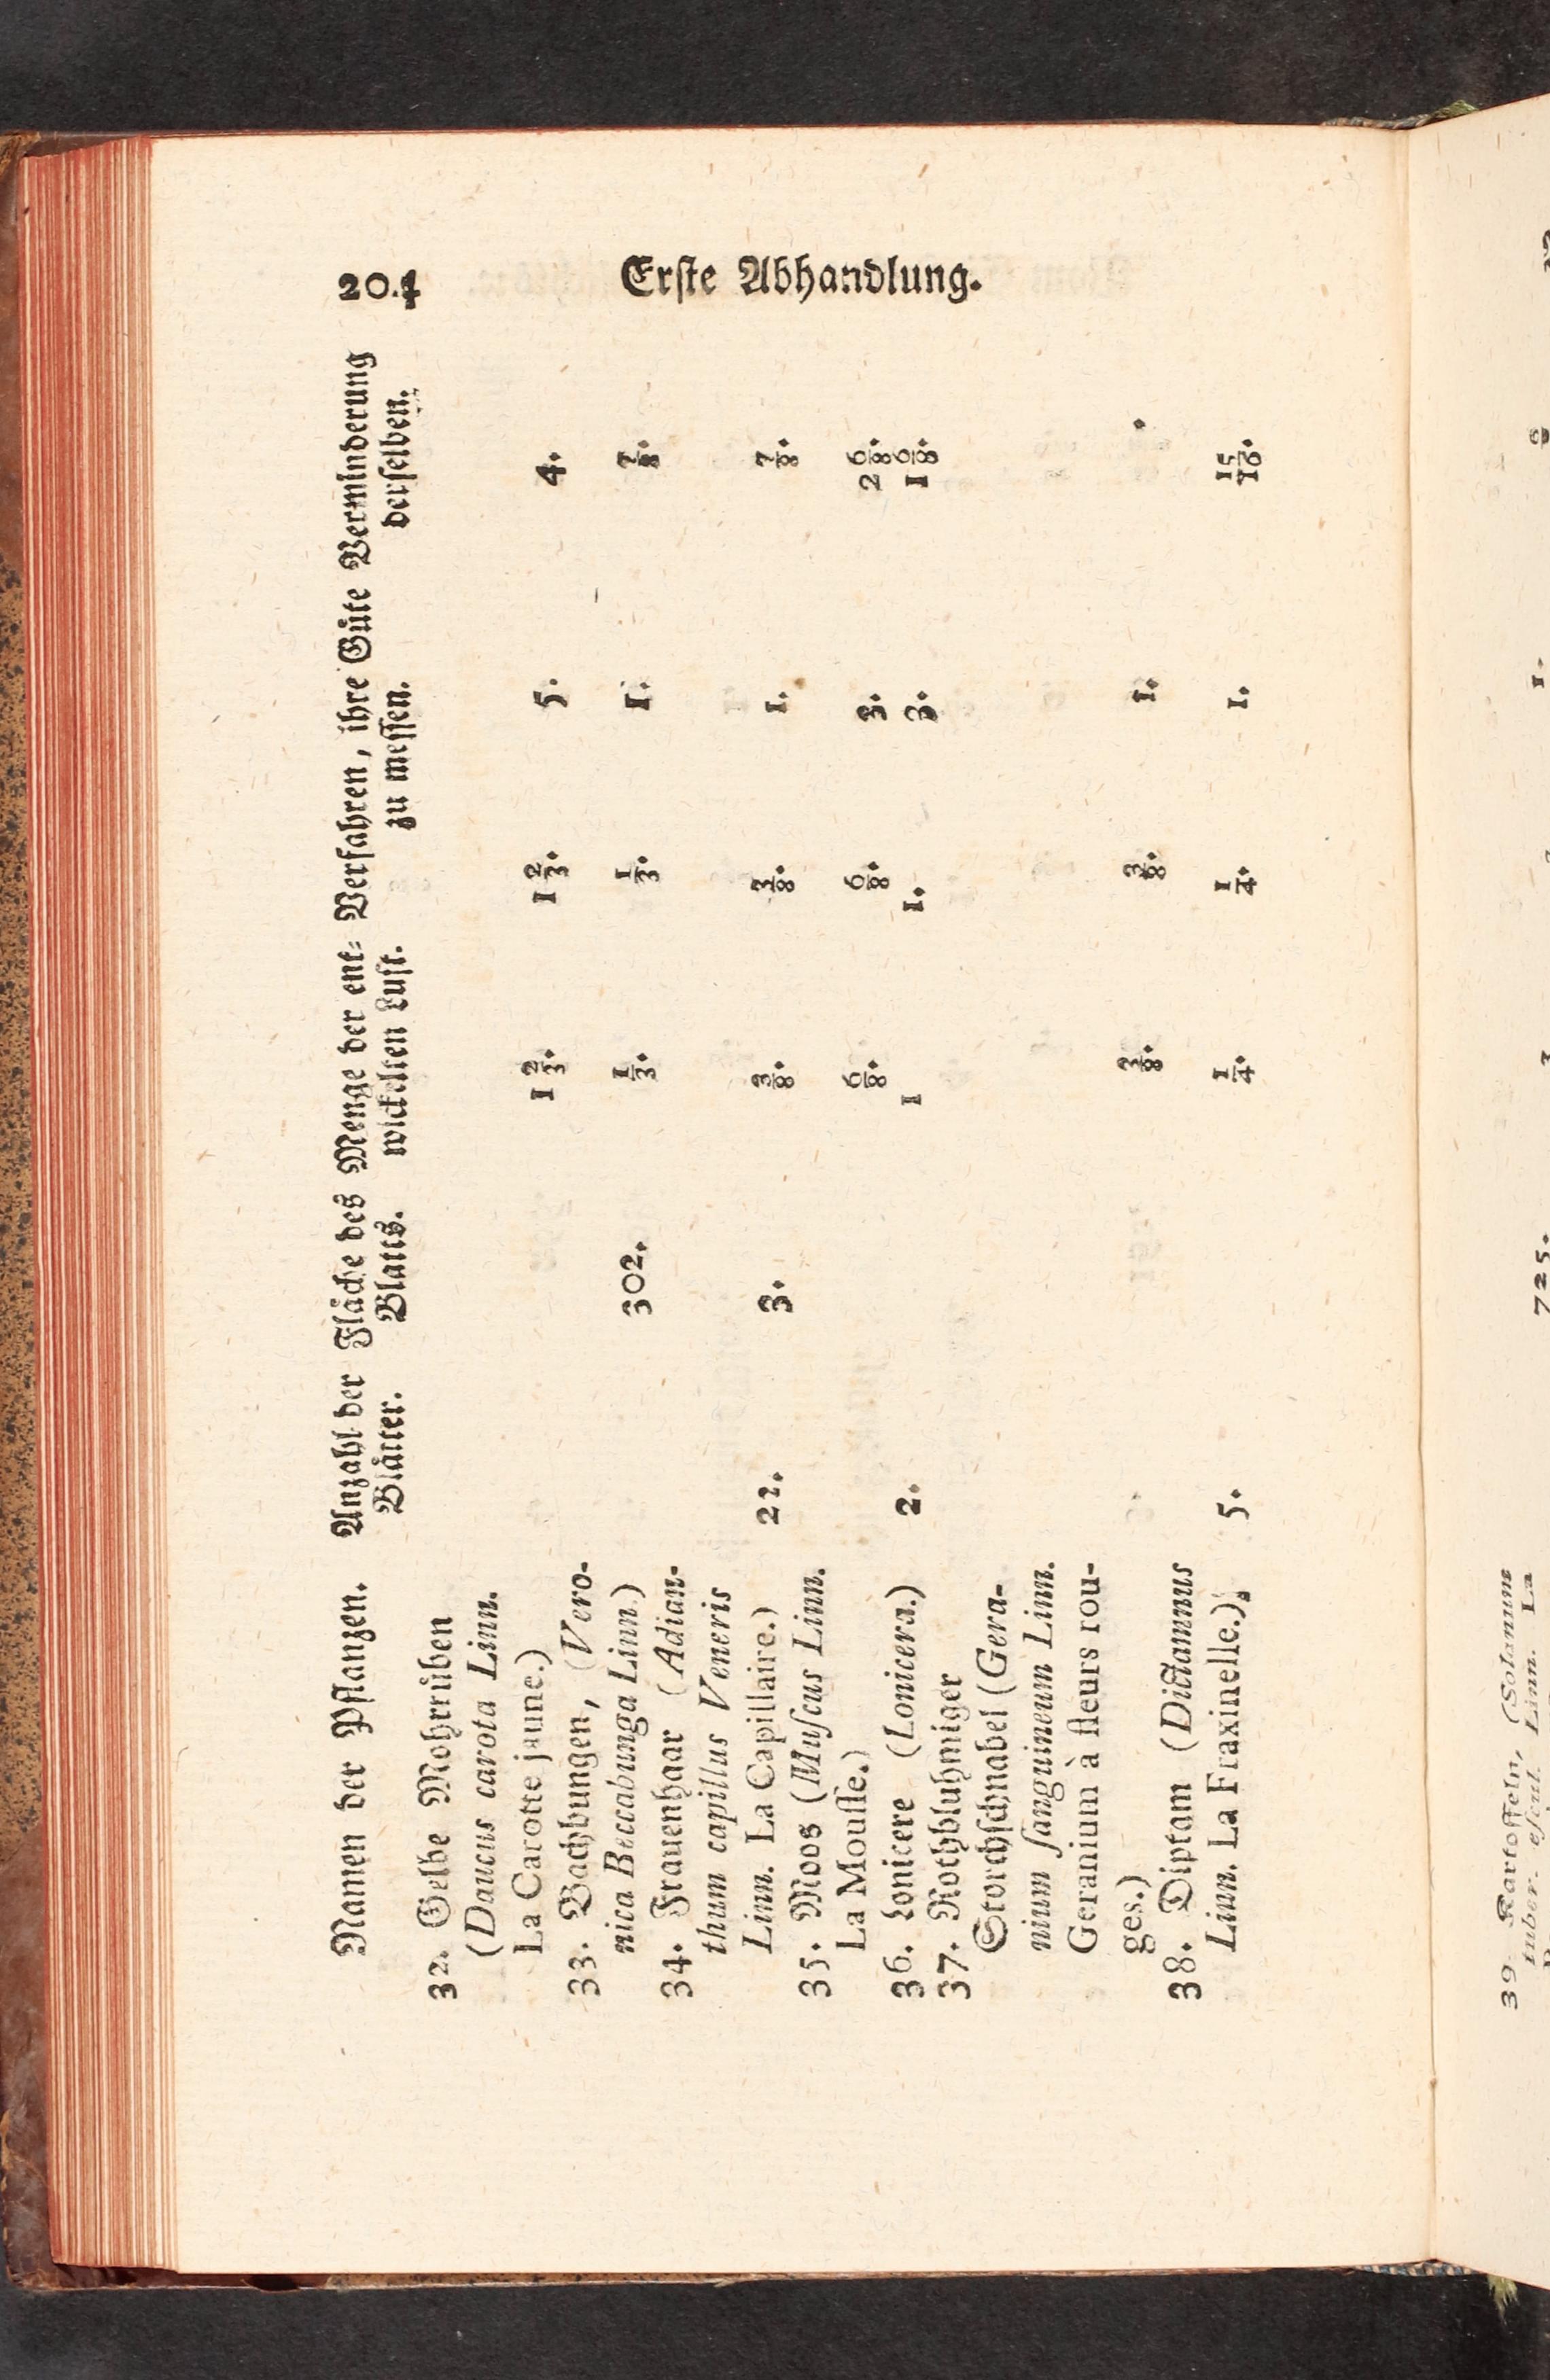 204 Erste Abhandlung.
Namen der Pflanzen. Anzahl der Fläche des Menge der ent= Verfahren, ihre Güte Verminderung
Blätter. Blatts. wickelten Luft. zu messen. derselben.
32. Gelbe Mohrrüben
(Daucus carota Linn.
La Carotte jaune.) 1 2/3. 1 2/3. 5. 4.
33. Bachbungen, (Vero-
nica Beccabunga Linn.) 302. 1/3. 1/3. 1. 7/8.
34. Frauenhaar (Adian-
thum capillus Veneris
Linn. La Capillaire.) 22. 3. 3/8. 3/8. 1. 7/8.
35. Moos (Muſcus Linn.
La Mouſſe.) 6/8. 6/8. 3. 2 6/8.
36. Lonicere (Lonicera.) 2. 1 1. 3. 1 6/8.
37. Rothbluhmiger
Storchschnabel (Gera-
nium ſanguineum Linn.
Geranium à fleurs rou-
ges.) 3/8. 3/8. 1. .
38. Diptam (Dictamnus
Linn. La Fraxinelle.) 5. 1/4. 1/4. 1. 15/16.
39. Kartoffeln, (Solanum
tuber. eſcul. Linn. La
725. 1.